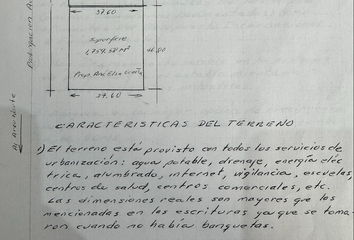 37.60
Superficie
1,759.58 M²
46.80
Prop. Ana Elia
37.60
CARACTERISTICAS DEL TERRENO
1) El terreno está provisto con todos los servicios de
urbanización: agua potable, drenaje, energía eléc
trica, alumbrado, internet, vigilancia, escuelas,
centros de salud, centros comerciales, etc.
Las dimensiones reales son mayores que las
mencionadas en las escrituras ya que se toma-
ron cuando no había banquetas.